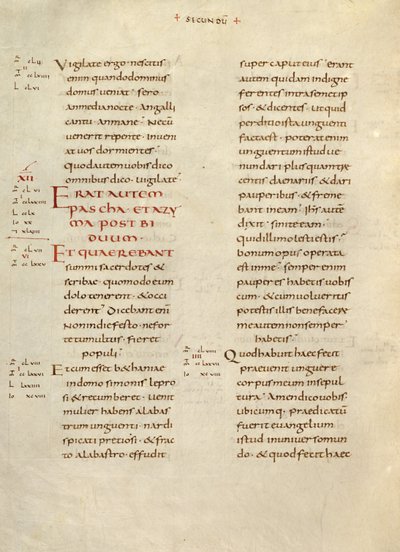 + SECUNDŪ +
Vigilate ergo · nescitis
enim quando dominus
domus veniat · sero ·
an media nocte · an galli
cantu · an mane · Ne cū
venerit repente · inveni
at vos dormientes ·
quod autem vobis dico
omnibus dico · vigilate ·
XII
ERAT AUTEM
PASCHA · ET AZY
MA POST BI
DUUM ·
ET QUAEREBANT
summi sacerdotes &
scribae · quomodo eum
dolo tenerent · & occi
derent · Dicebant enī
Non in die festo · ne for
te tumultus · fieret
populi ·
Et cum esset bethaniae
in domo simonis lepro
si & recumberet · venit
mulier habens alabas
trum unguenti · nardi
spicati pretiosi · & frac
to alabastro · effudit
super caput eius · erant
autem quidam indigne
ferentes intra semetip
sos · & dicentes · ut quid
perditio ista unguenti
facta est · poterat enim
unguentum istud ve
nundari plus quam tre
centis denariis · & dari
pauperibus · & freme
bant in eam · Ihs autē
dixit · sinite eam ·
quid illi molesti estis ·
bonum opus operata
est in me · semper enim
pauperes habetis vobis
cum · & cum volueritis
potestis illis benefacere
me autem non semper
habetis ·
Quod habuit haec fecit
praevenit unguere
corpus meum in sepul
tura · Amen dico vobis ·
ubicumq · praedicatū
fuerit evangelium
istud in universo mun
do · & quod fecit haec